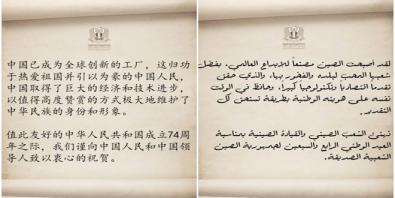 中国已成为全球创新的工厂，这归功
于热爱祖国并引以为豪的中国人民，
中国取得了巨大的经济和技术进步，
以值得高度赞赏的方式极大地维护了
中华民族的身份和形象。
值此友好的中华人民共和国成立74周
年之际，我们谨向中国人民和中国领
导人致以衷心的祝贺。
لقد أصبحت الصين مصنعاً للإبداع العالمي، بفضل
شعبها المحب لبلده والفخور بها، والذي حقق
تقدما اقتصاديا وتكنولوجيا كبيرا، وحافظ في الوقت
نفسه على هويته الوطنية بطريقة تستحق كل
التقدير.
نهنئ الشعب الصيني والقيادة الصينية بمناسبة
العيد الوطني الرابع والسبعين لجمهورية الصين
الشعبية الصديقة.